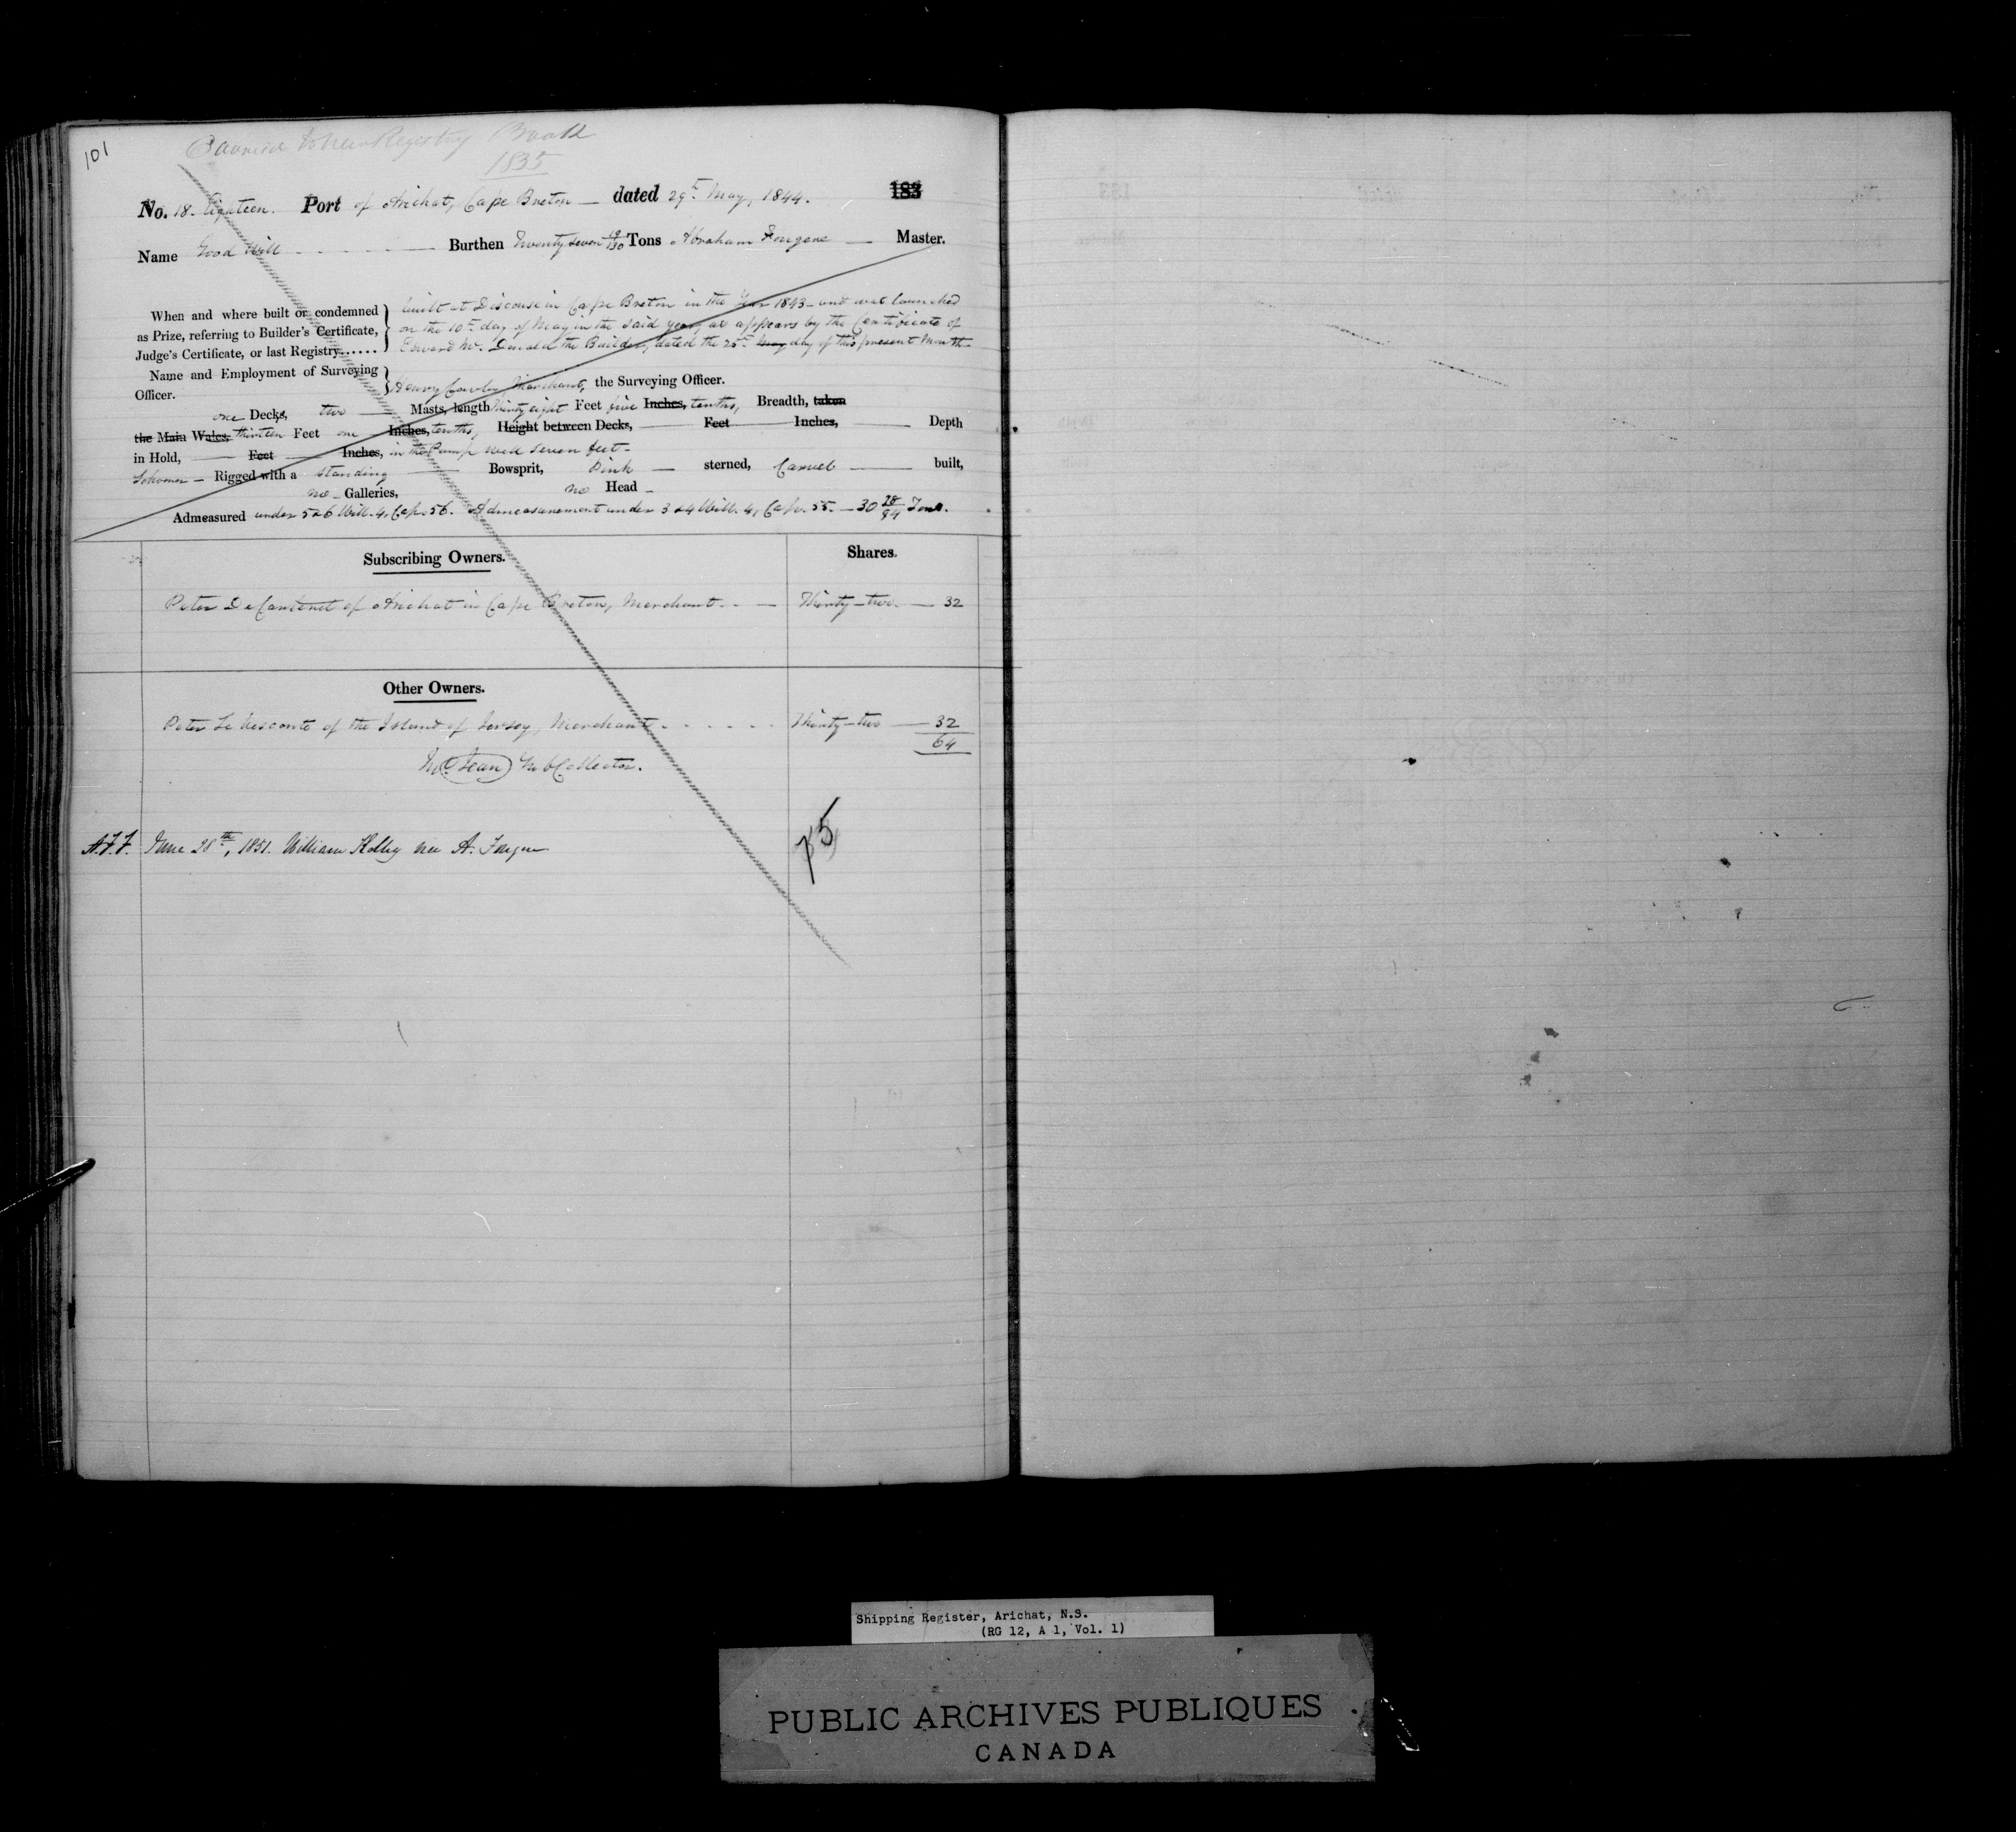 101
Carried to New Registry Book
1835
No. 18. Eighteen. Port of Arichat, Cape Breton — dated 29th May, 1844. 183
Name Good Will Burthen Twenty seven 19/130 Tons Abraham Fougere — Master.
When and where built or condemned
as Prize, referring to Builder's Certificate,
Judge's Certificate, or last Registry......
built at Discouse in Cape Breton in the Year 1843 – and was launched
on the 10th day of May in the said year, as appears by the Certificate of
Edward Mc. Donald the Builder, dated the 25th May day of this present Month
Name and Employment of Surveying
Officer.
Henry Merchant, the Surveying Officer.
one Decks, two — Masts, length Thirty eight Feet five Inches, tenths, Breadth, taken
the Main Wales, thirteen Feet one Inches, tenths, Height between Decks, — Feet — Inches, — Depth
in Hold, — Feet — Inches, in the Pump well seven feet –
Schooner – Rigged with a standing — Bowsprit, Pink — sterned, Carvel — built,
no – Galleries, no Head –
Admeasured under 5 & 6 Will. 4, Cap. 56. Admeasurement under 3 & 4 Will. 4, Cap. 55. – 30 28/94 Tons.
Subscribing Owners. Shares.
Peter DeCarteret of Arichat in Cape Breton, Merchant. – — Thirty-two. — 32
Other Owners.
Peter Le Vesconte of the Island of Jersey, Merchant Thirty-two — 32
64
Jean Sub Collector.
A.F.F. June 28th, 1851. William Kelly vice A. Fougere
p5
Shipping Register, Arichat, N.S.
(RG 12, A 1, Vol. 1)
PUBLIC ARCHIVES PUBLIQUES
CANADA